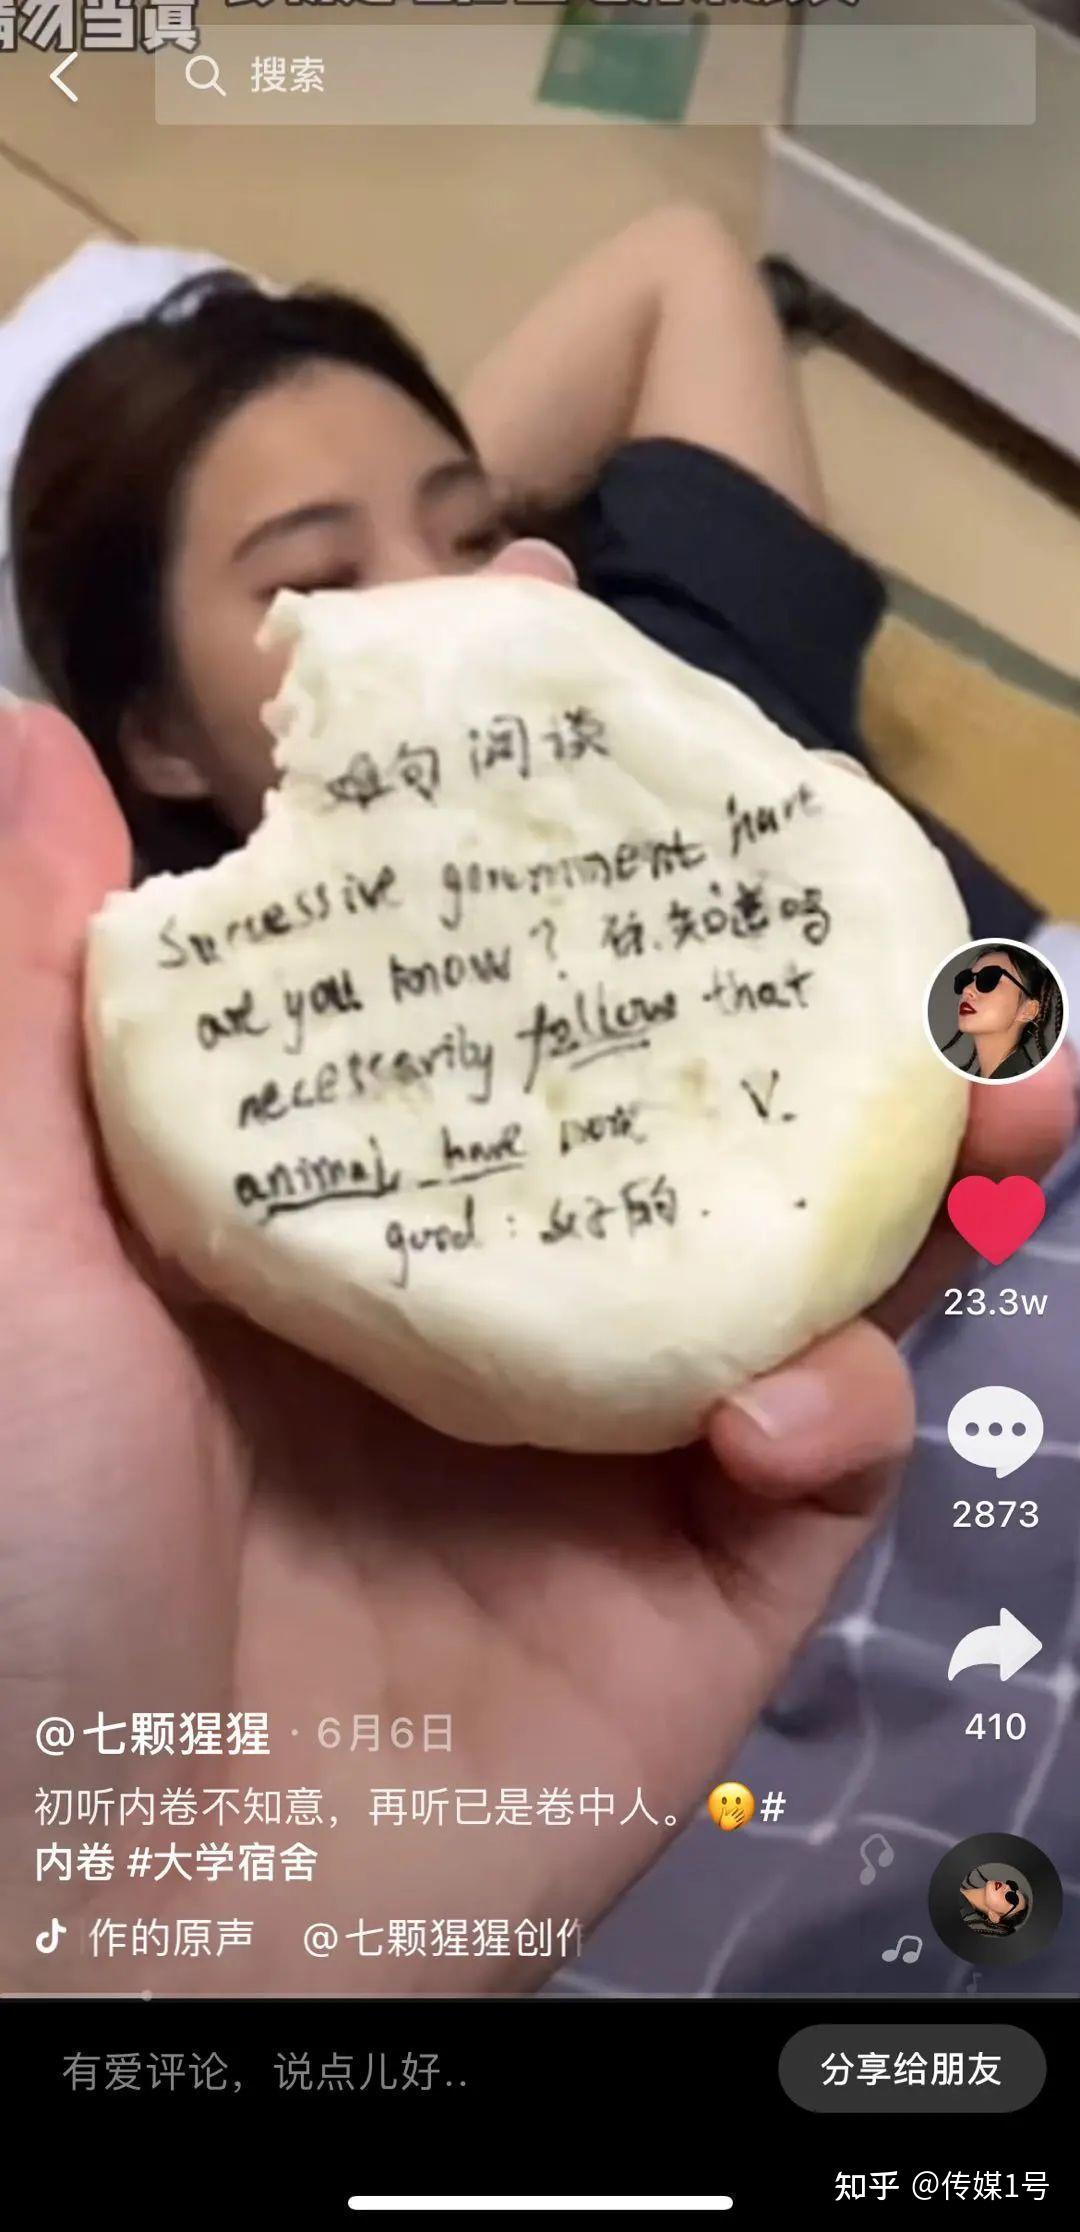 请勿当真
搜索
难句阅读
Successive government have
are you know? 你知道吗
necessarily follow that
animal have more V.
good: 好的.
23.3w
2873
410
@七颗猩猩 · 6月6日
初听内卷不知意，再听已是卷中人。🤭#
内卷 #大学宿舍
作的原声 @七颗猩猩创作
有爱评论，说点儿好..
分享给朋友
知乎 @传媒1号